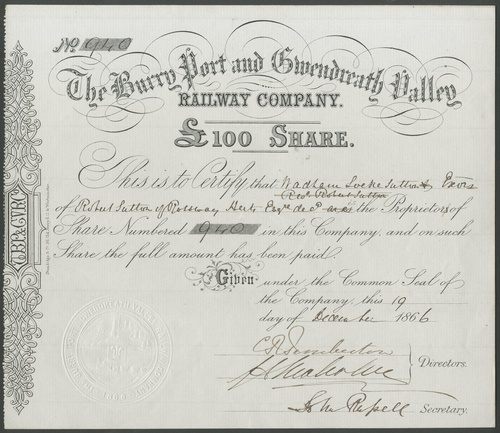 No 940
The Burry Port and Gwendreath Valley
RAILWAY COMPANY.
£100 SHARE.
This is to Certify that Wadham Locke Sutton & Exors
Robert Sutton
of Robert Sutton of Rossway Herts Esqre decd are the Proprietors of
Share Numbered 940 in this Company, and on such
Share the full amount has been paid
Given under the Common Seal of
the Company this 19
day of December 1866
Directors.
John Russell Secretary.
B.P. & G.V.RY.